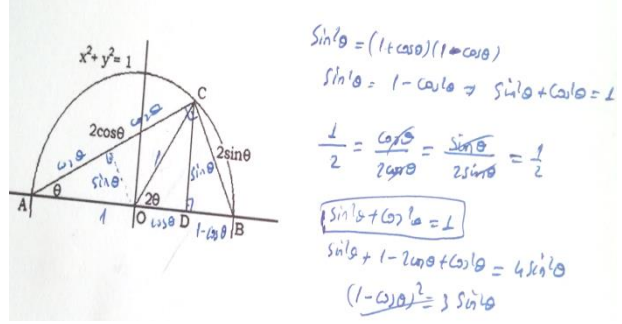 x²+y²=1
C
cosθ
2cosθ
cosθ
θ
sinθ
1
sinθ
2sinθ
θ
2θ
A
1
O
cosθ
D
1-cosθ
B
Sin²θ = (1+cosθ)(1-cosθ)
Sin²θ = 1 - cos²θ ⇒ Sin²θ + Cos²θ = 1
1/2 = cosθ/2cosθ = sinθ/2sinθ = 1/2
Sin²θ + Cos²θ = 1
Sin²θ + 1 - 2cosθ + Cos²θ = 4 Sin²θ
(1-cosθ)² = 3 Sin²θ